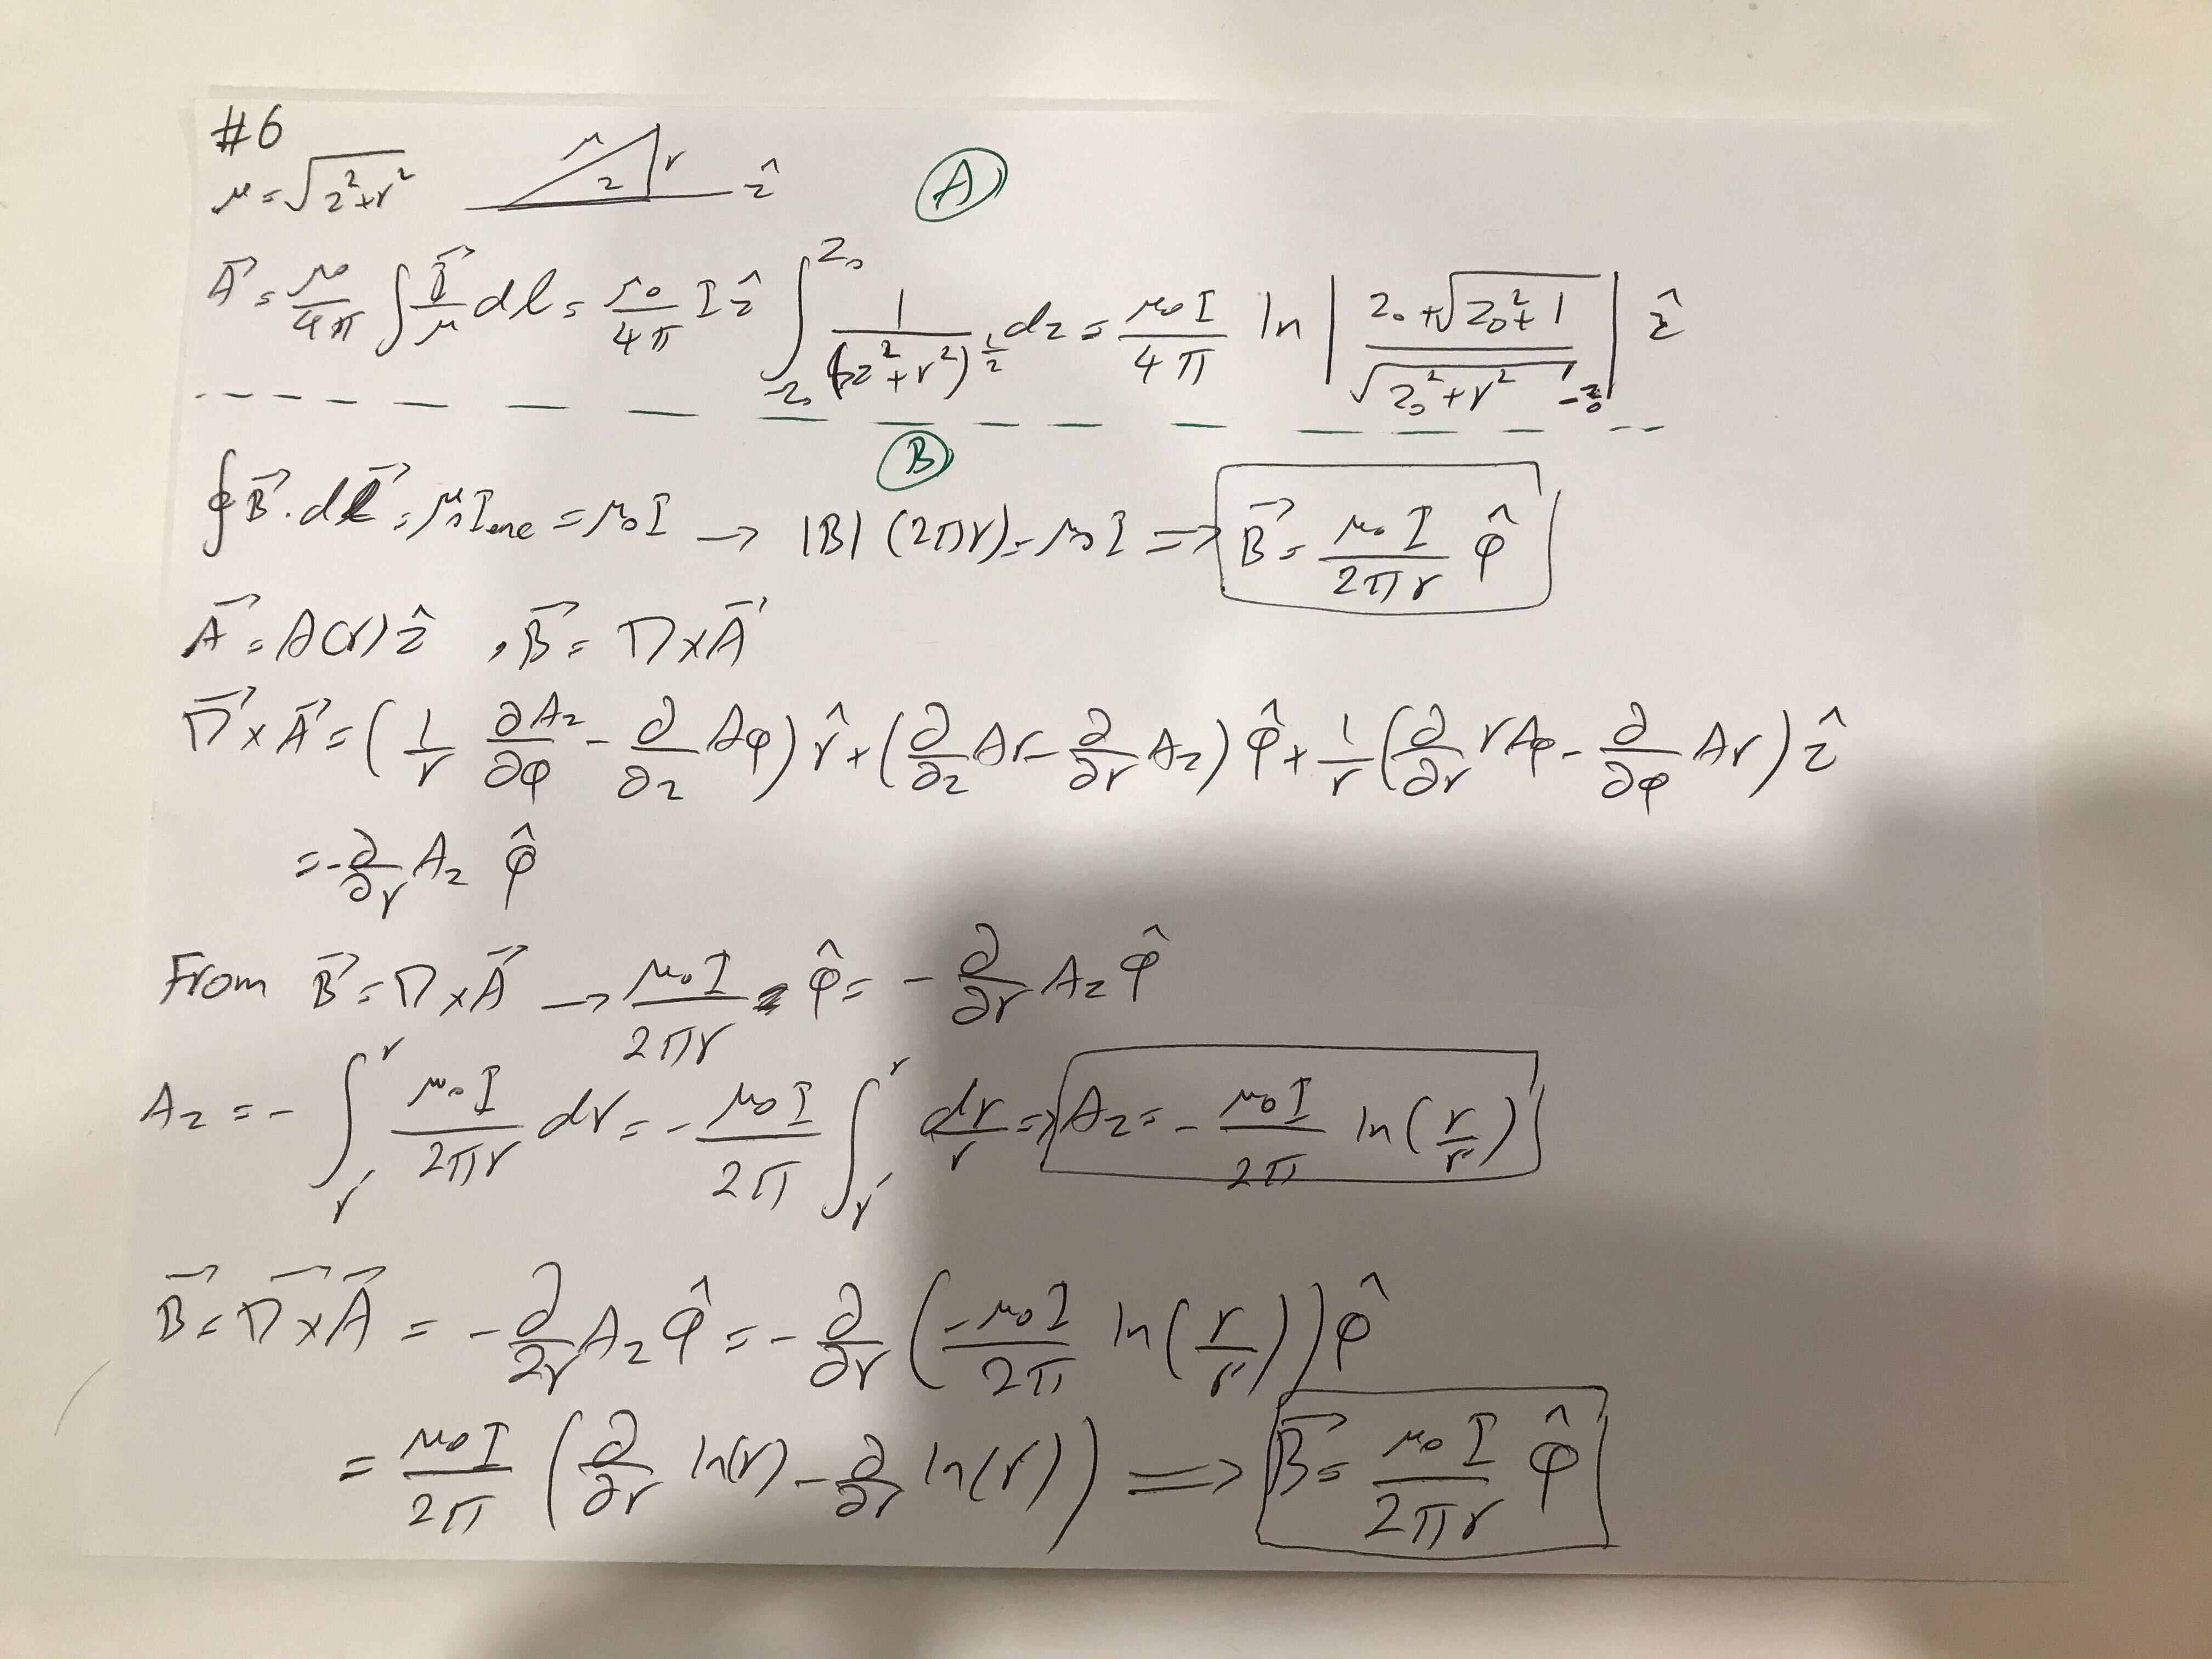 #6
μ = √(z²+r²) μ r z ẑ Ⓐ
A⃗ = μ₀/4π ∫ I⃗/μ dl = μ₀/4π I ẑ ∫_{-z₀}^{z₀} 1/(z²+r²)^{1/2} dz = μ₀I/4π ln | (z₀+√(z₀²+1)) / (√(z₀²+r²) - z₀) | ẑ
Ⓑ
∮ B⃗ · dl⃗ = μ₀I_enc = μ₀I → |B| (2πr) = μ₀I ⇒ B⃗ = μ₀I/2πr φ̂
A⃗ = A(r) ẑ , B⃗ = ∇×A⃗
∇⃗×A⃗ = (1/r ∂A_z/∂φ - ∂/∂z A_φ) r̂ + (∂/∂z A_r - ∂/∂r A_z) φ̂ + 1/r (∂/∂r rA_φ - ∂/∂φ A_r) ẑ
= -∂/∂r A_z φ̂
From B⃗ = ∇×A⃗ → μ₀I/2πr φ̂ = - ∂/∂r A_z φ̂
A_z = - ∫_{r'}^{r} μ₀I/2πr dr = - μ₀I/2π ∫_{r'}^{r} dr/r ⇒ A_z = - μ₀I/2π ln(r/r')
B⃗ = ∇⃗×A⃗ = - ∂/∂r A_z φ̂ = - ∂/∂r (-μ₀I/2π ln(r/r')) φ̂
= μ₀I/2π (∂/∂r ln(r) - ∂/∂r ln(r')) ⟹ B⃗ = μ₀I/2πr φ̂